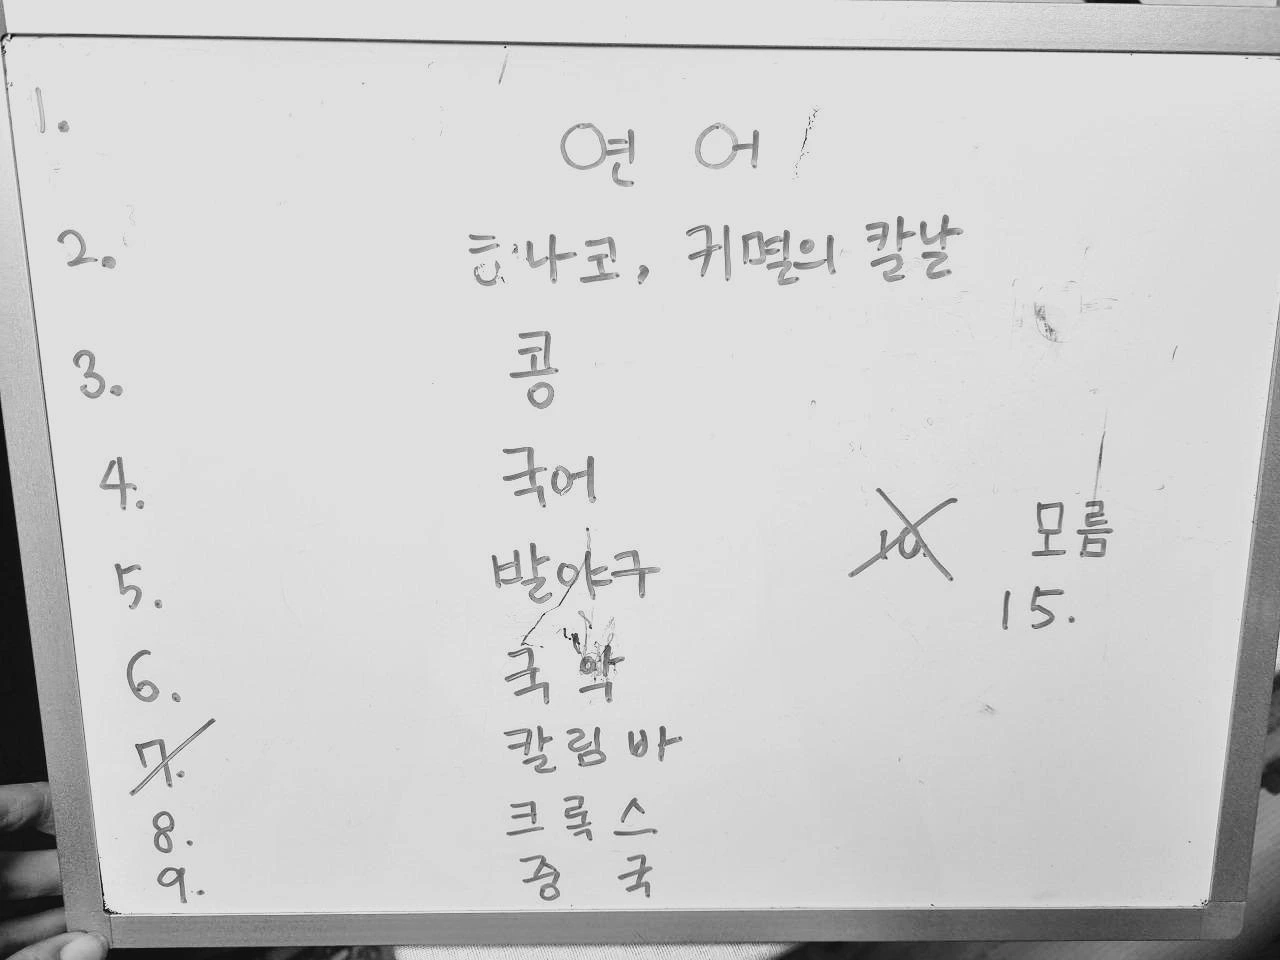 1. 연어
2. 하나코, 귀멸의 칼날
3. 콩
4. 국어
5. 발야구
6. 국악
7. 칼림바
8. 크록스
9. 중국
10. 모름
15.